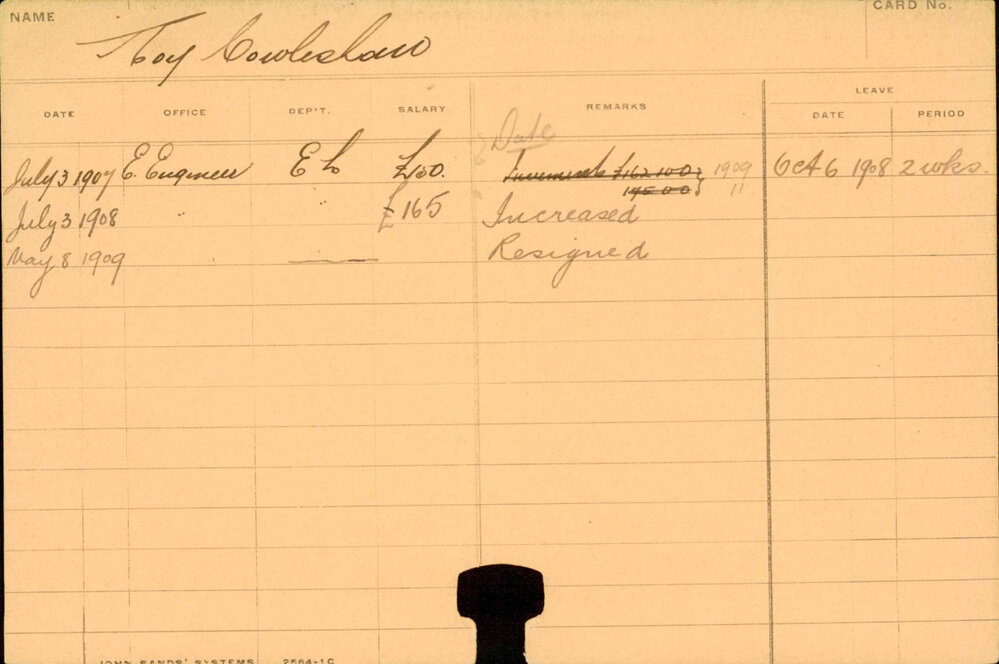 NAME
CARD No.
Cowlishaw
DATE OFFICE DEP'T. SALARY REMARKS LEAVE
DATE PERIOD
Date
July 3 1907 E. Engineer E L £150. Increments £162.10.0 1909 Oct 6 1908 2 wks.
195.0.0 } 11
July 3 1908 " " £165 Increased
May 8 1909 Resigned
JOHN SANDS' SYSTEMS 2564-1C